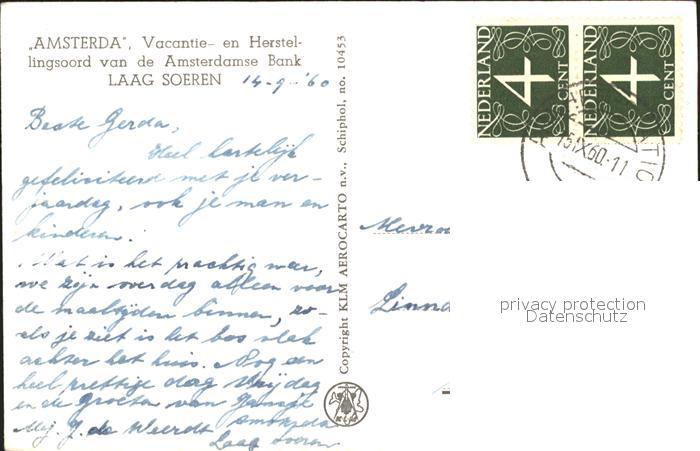 „AMSTERDA", Vacantie- en Herstel-
lingsoord van de Amsterdamse Bank
LAAG SOEREN 14-9-'60
Beste Gerda,
Heel hartelijk
gefeliciteerd met je ver-
jaardag, ook je man en
kinderen!
Wat is het prachtig weer,
we zijn overdag alleen voor
de maaltijden binnen, zo-
als je ziet is het bos vlak
achter het huis. Nog een
heel prettige dag Vrijdag
en de Groeten van
Mej. J. de Weerdt
Laag Soeren
Copyright KLM AEROCARTO n.v., Schiphol, no. 10453
KLM
NEDERLAND
4
CENT
NEDERLAND
4
CENT
15.IX.60.-11
Mevro
Linna
privacy protection
Datenschutz